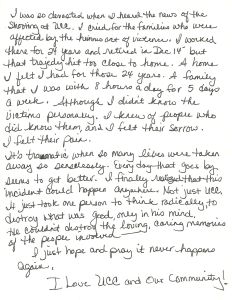 I was so devasted when I heard the news of the
shooting at UCC. I cried for the families who were
affected by the horrific act of violence. I worked
there for 24 years and retired in Dec. 14 but
that tragedy hit too close to home. A home
I felt I had for those 24 years. A family
that I was with 8 hours a day for 5 days
a week. Although I didn't know the
victims personally, I knew of people who
did know them, and I felt their sorrow.
I felt their pain.
It's traumatic when so many lives were taken
away so senselessly. Every day that goes by,
seems to get better. I finally realized that this
incident could happen anywhere. Not just UCC,
it just took one person to think radically to
destroy what was good, only in his mind.
He couldn't destroy the loving, caring memories
of the people involved
I just hope and pray it never happens
again.
I Love UCC and Our Community!